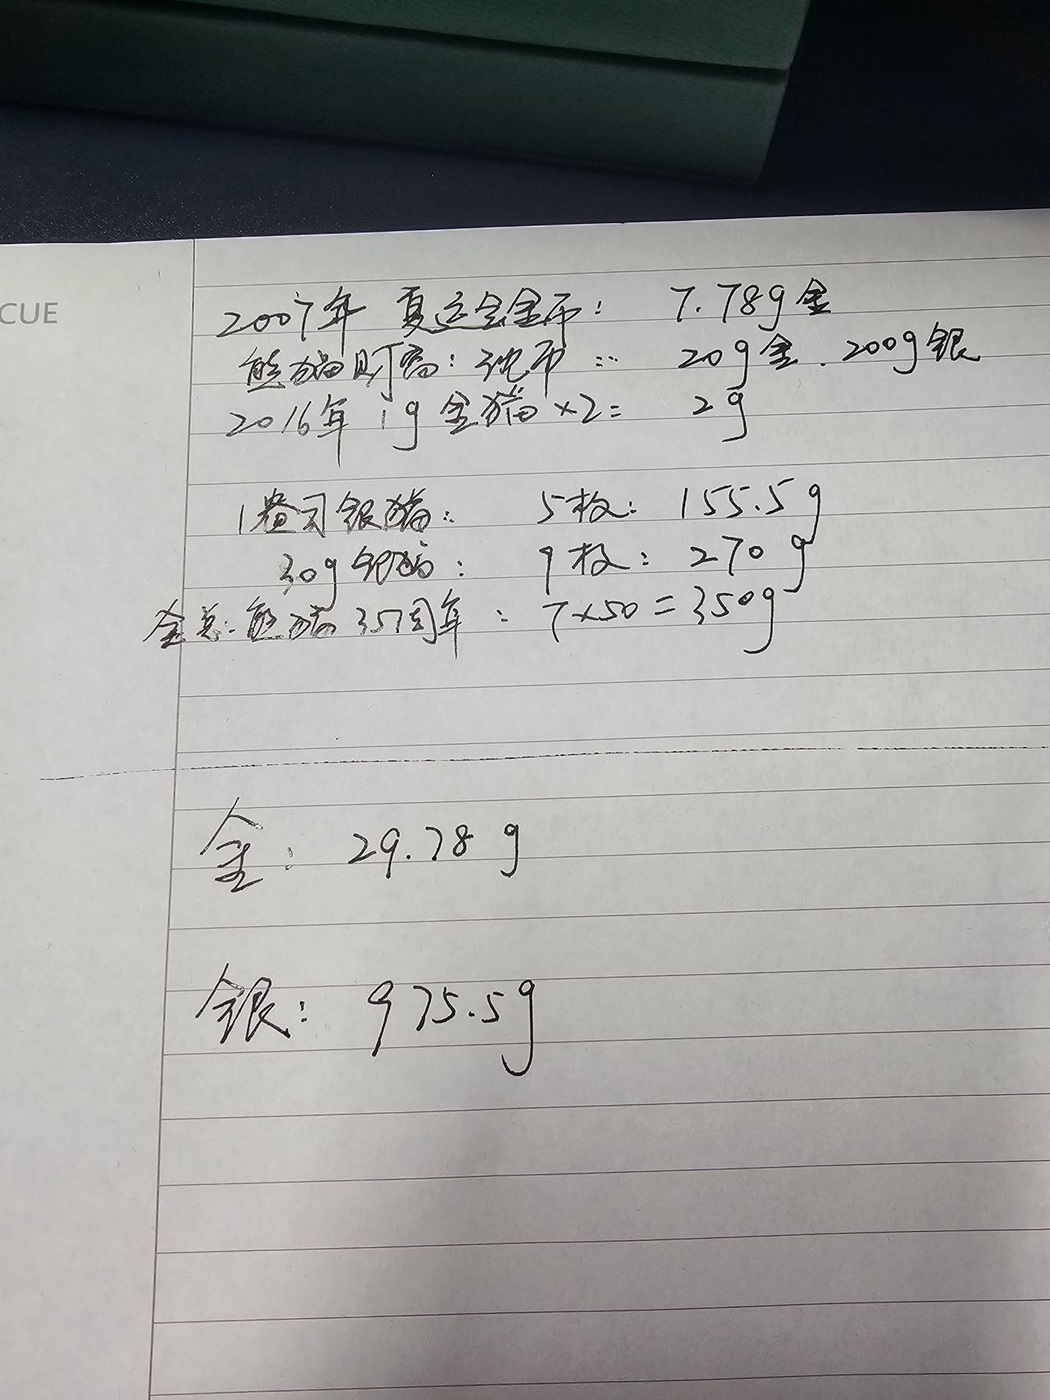 CUE
2007年 夏运会金币: 7.78g金
熊猫财富: 纯币: 20g金. 200g银
2016年 1g 金猫 ×2= 2g
1盎司银猫: 5枚: 155.5g
30g银猫: 9枚: 270g
金总: 熊猫35周年: 7×50=350g
金: 29.78g
银: 975.5g